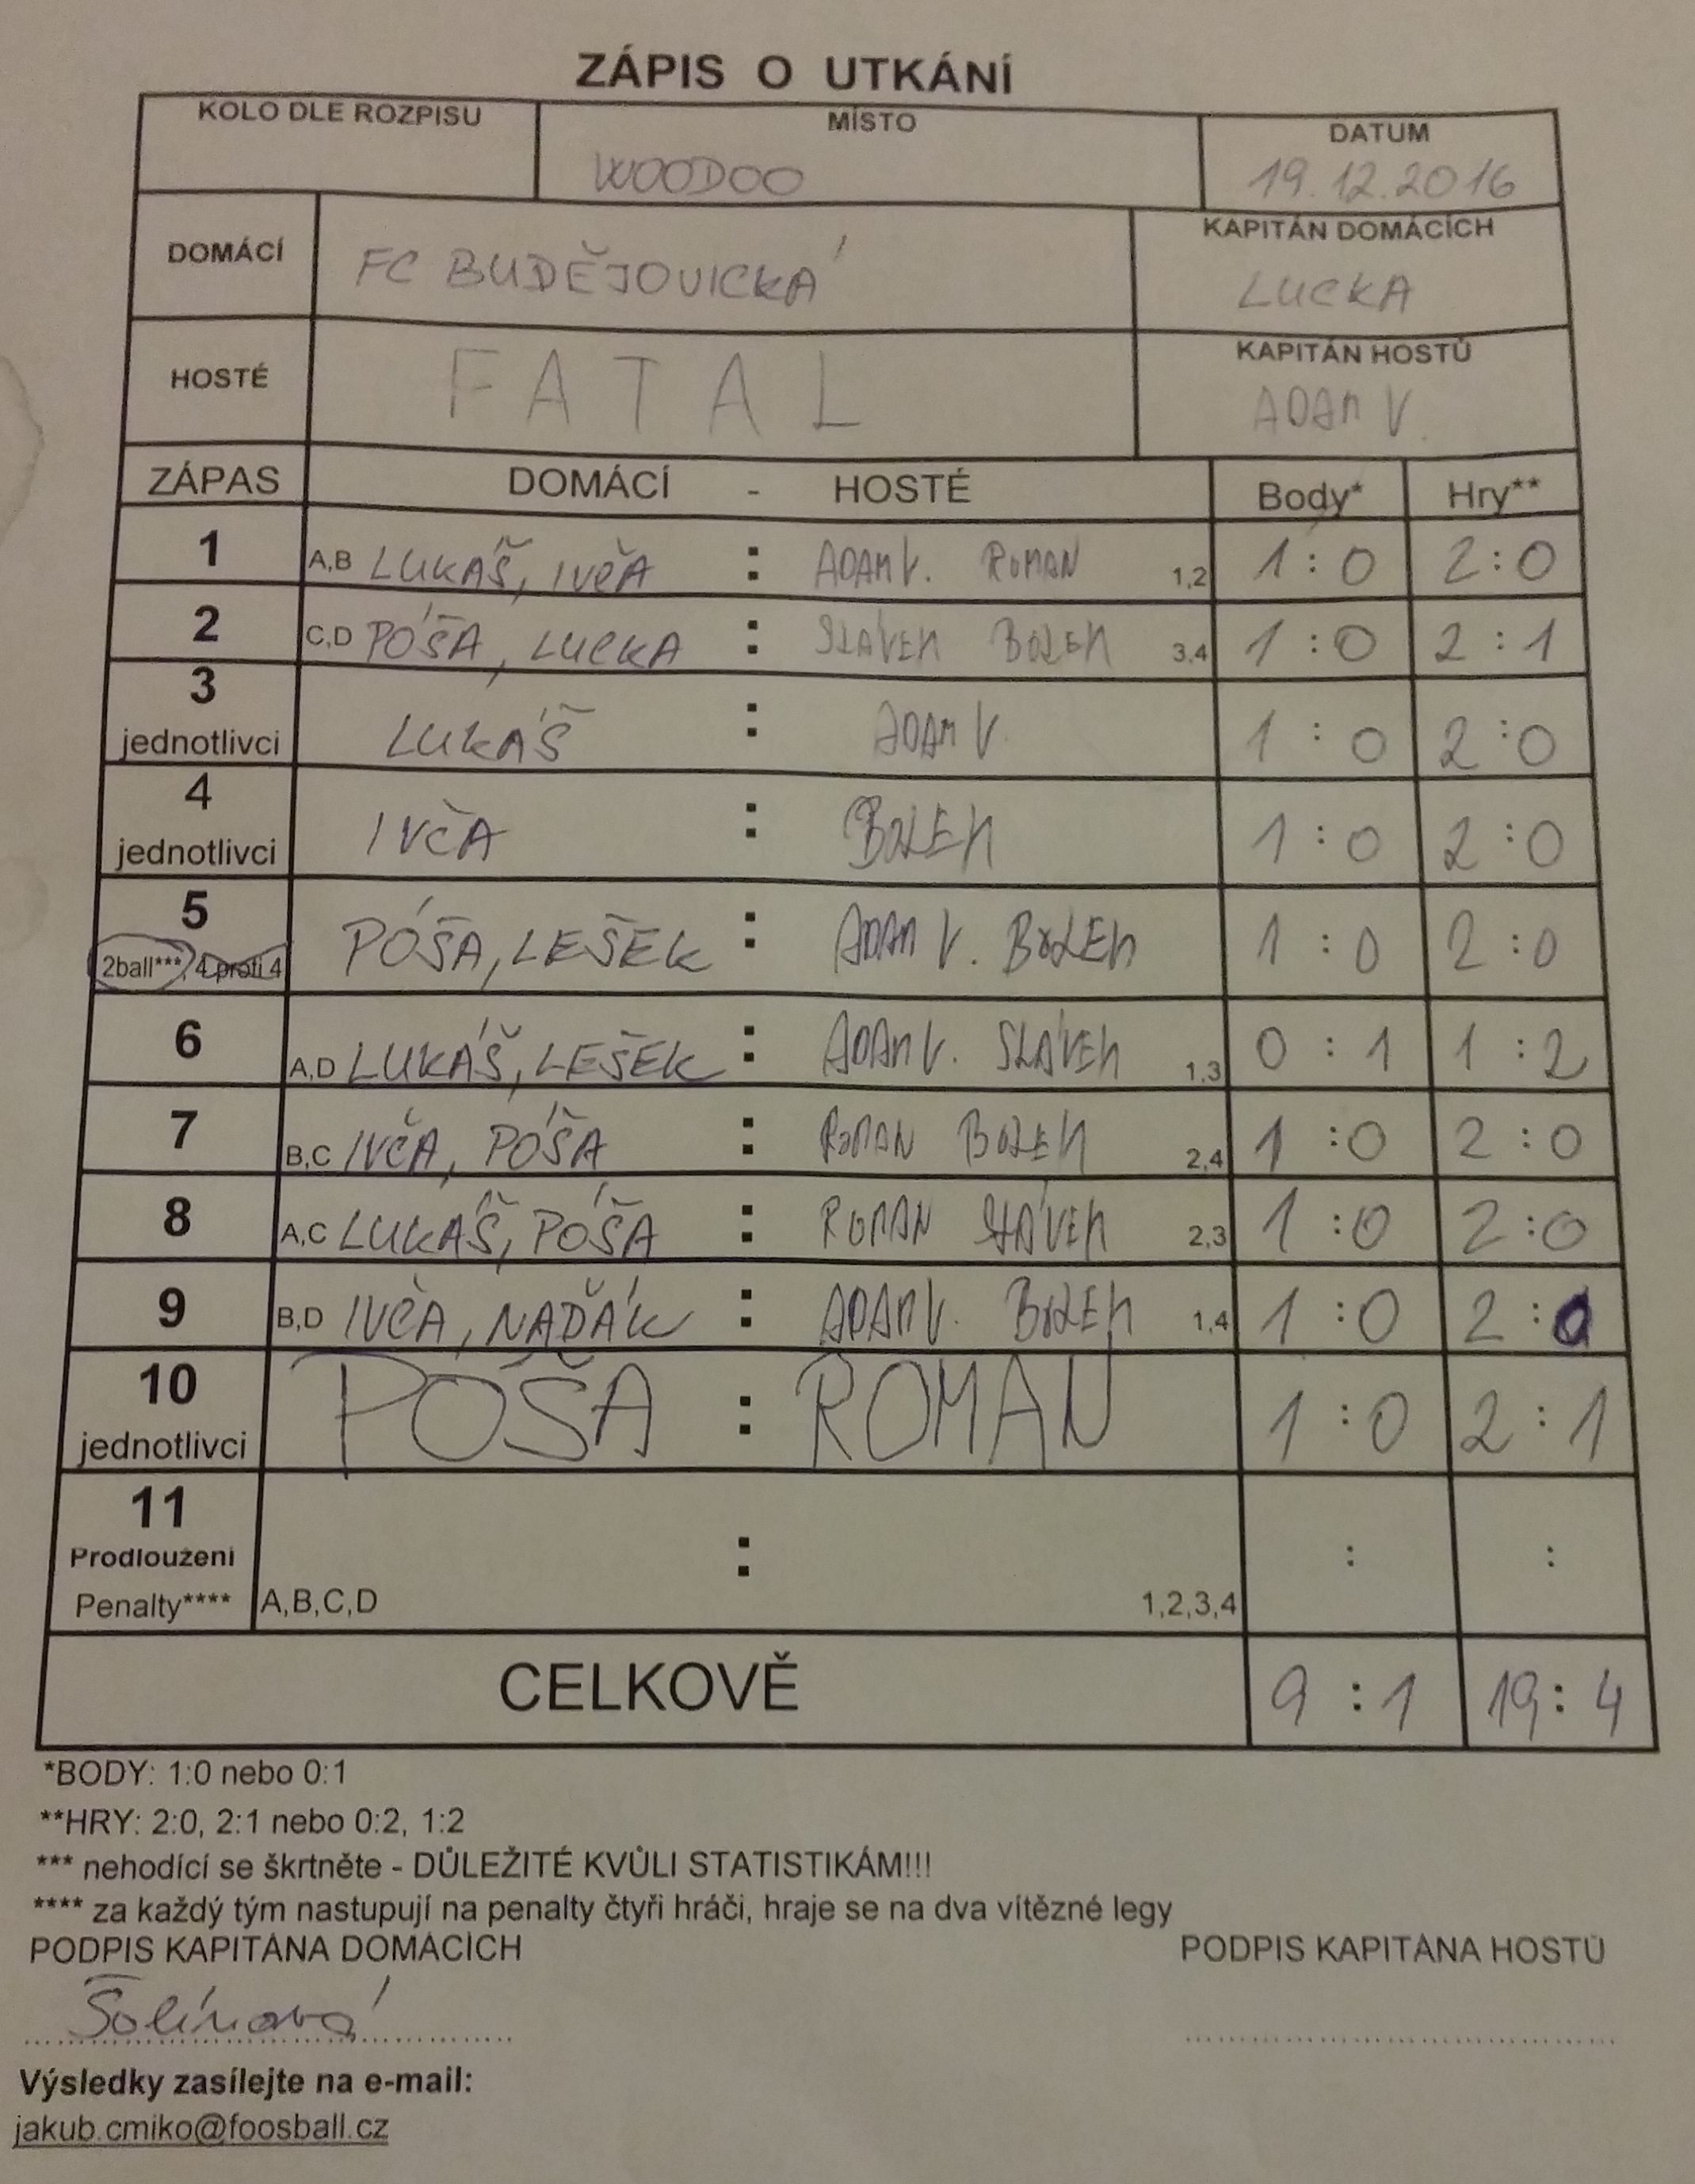 ZÁPIS O UTKÁNÍ
KOLO DLE ROZPISU MÍSTO DATUM
WOODOO 19.12.2016
DOMÁCÍ FC BUDĚJOVICKÁ KAPITÁN DOMÁCÍCH
LUCKA
HOSTÉ FATAL KAPITÁN HOSTŮ
ADAM V.
ZÁPAS DOMÁCÍ - HOSTÉ Body* Hry**
1 A,B LUKÁŠ, IVČA : ADAM V. ROMAN 1,2 1:0 2:0
2 C,D PÓŠA, LUCKA : SLÁVEK BOLEK 3,4 1:0 2:1
3 jednotlivci LUKÁŠ : ADAM V. 1:0 2:0
4 jednotlivci IVČA : BOLEK 1:0 2:0
5 2ball***, 4 proti 4 PÓŠA, LEŠEK : ADAM V. BOLEK 1:0 2:0
6 A,D LUKÁŠ, LEŠEK : ADAM V. SLÁVEK 1,3 0:1 1:2
7 B,C IVČA, PÓŠA : ROMAN BOLEK 2,4 1:0 2:0
8 A,C LUKÁŠ, PÓŠA : ROMAN SLÁVEK 2,3 1:0 2:0
9 B,D IVČA, NAĎÁK : ADAM V. BOLEK 1,4 1:0 2:0
10 jednotlivci PÓŠA : ROMAN 1:0 2:1
11 Prodloužení : : :
Penalty**** A,B,C,D 1,2,3,4
CELKOVĚ 9:1 19:4
*BODY: 1:0 nebo 0:1
**HRY: 2:0, 2:1 nebo 0:2, 1:2
*** nehodící se škrtněte - DŮLEŽITÉ KVŮLI STATISTIKÁM!!!
**** za každý tým nastupují na penalty čtyři hráči, hraje se na dva vítězné legy
PODPIS KAPITÁNA DOMÁCÍCH PODPIS KAPITÁNA HOSTŮ
Šolínová
Výsledky zasílejte na e-mail:
jakub.cmiko@foosball.cz